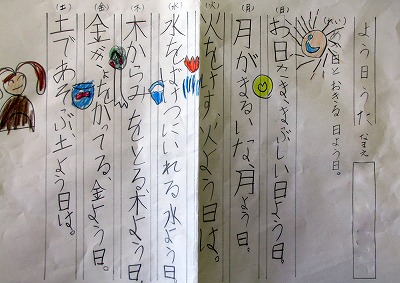 よう日うた なまえ
(れい)
日とおきる 日よう日。
(日)
お日さま、まぶしい日よう日。
(月)
月がまるいな、月よう日。
(火)
火をけす、火よう日は。
(水)
水をばけつにいれる水よう日。
(木)
木からみをとる木よう日。
(金)
金が かってる、金よう日。
(土)
土であそぶ、土よう日は。